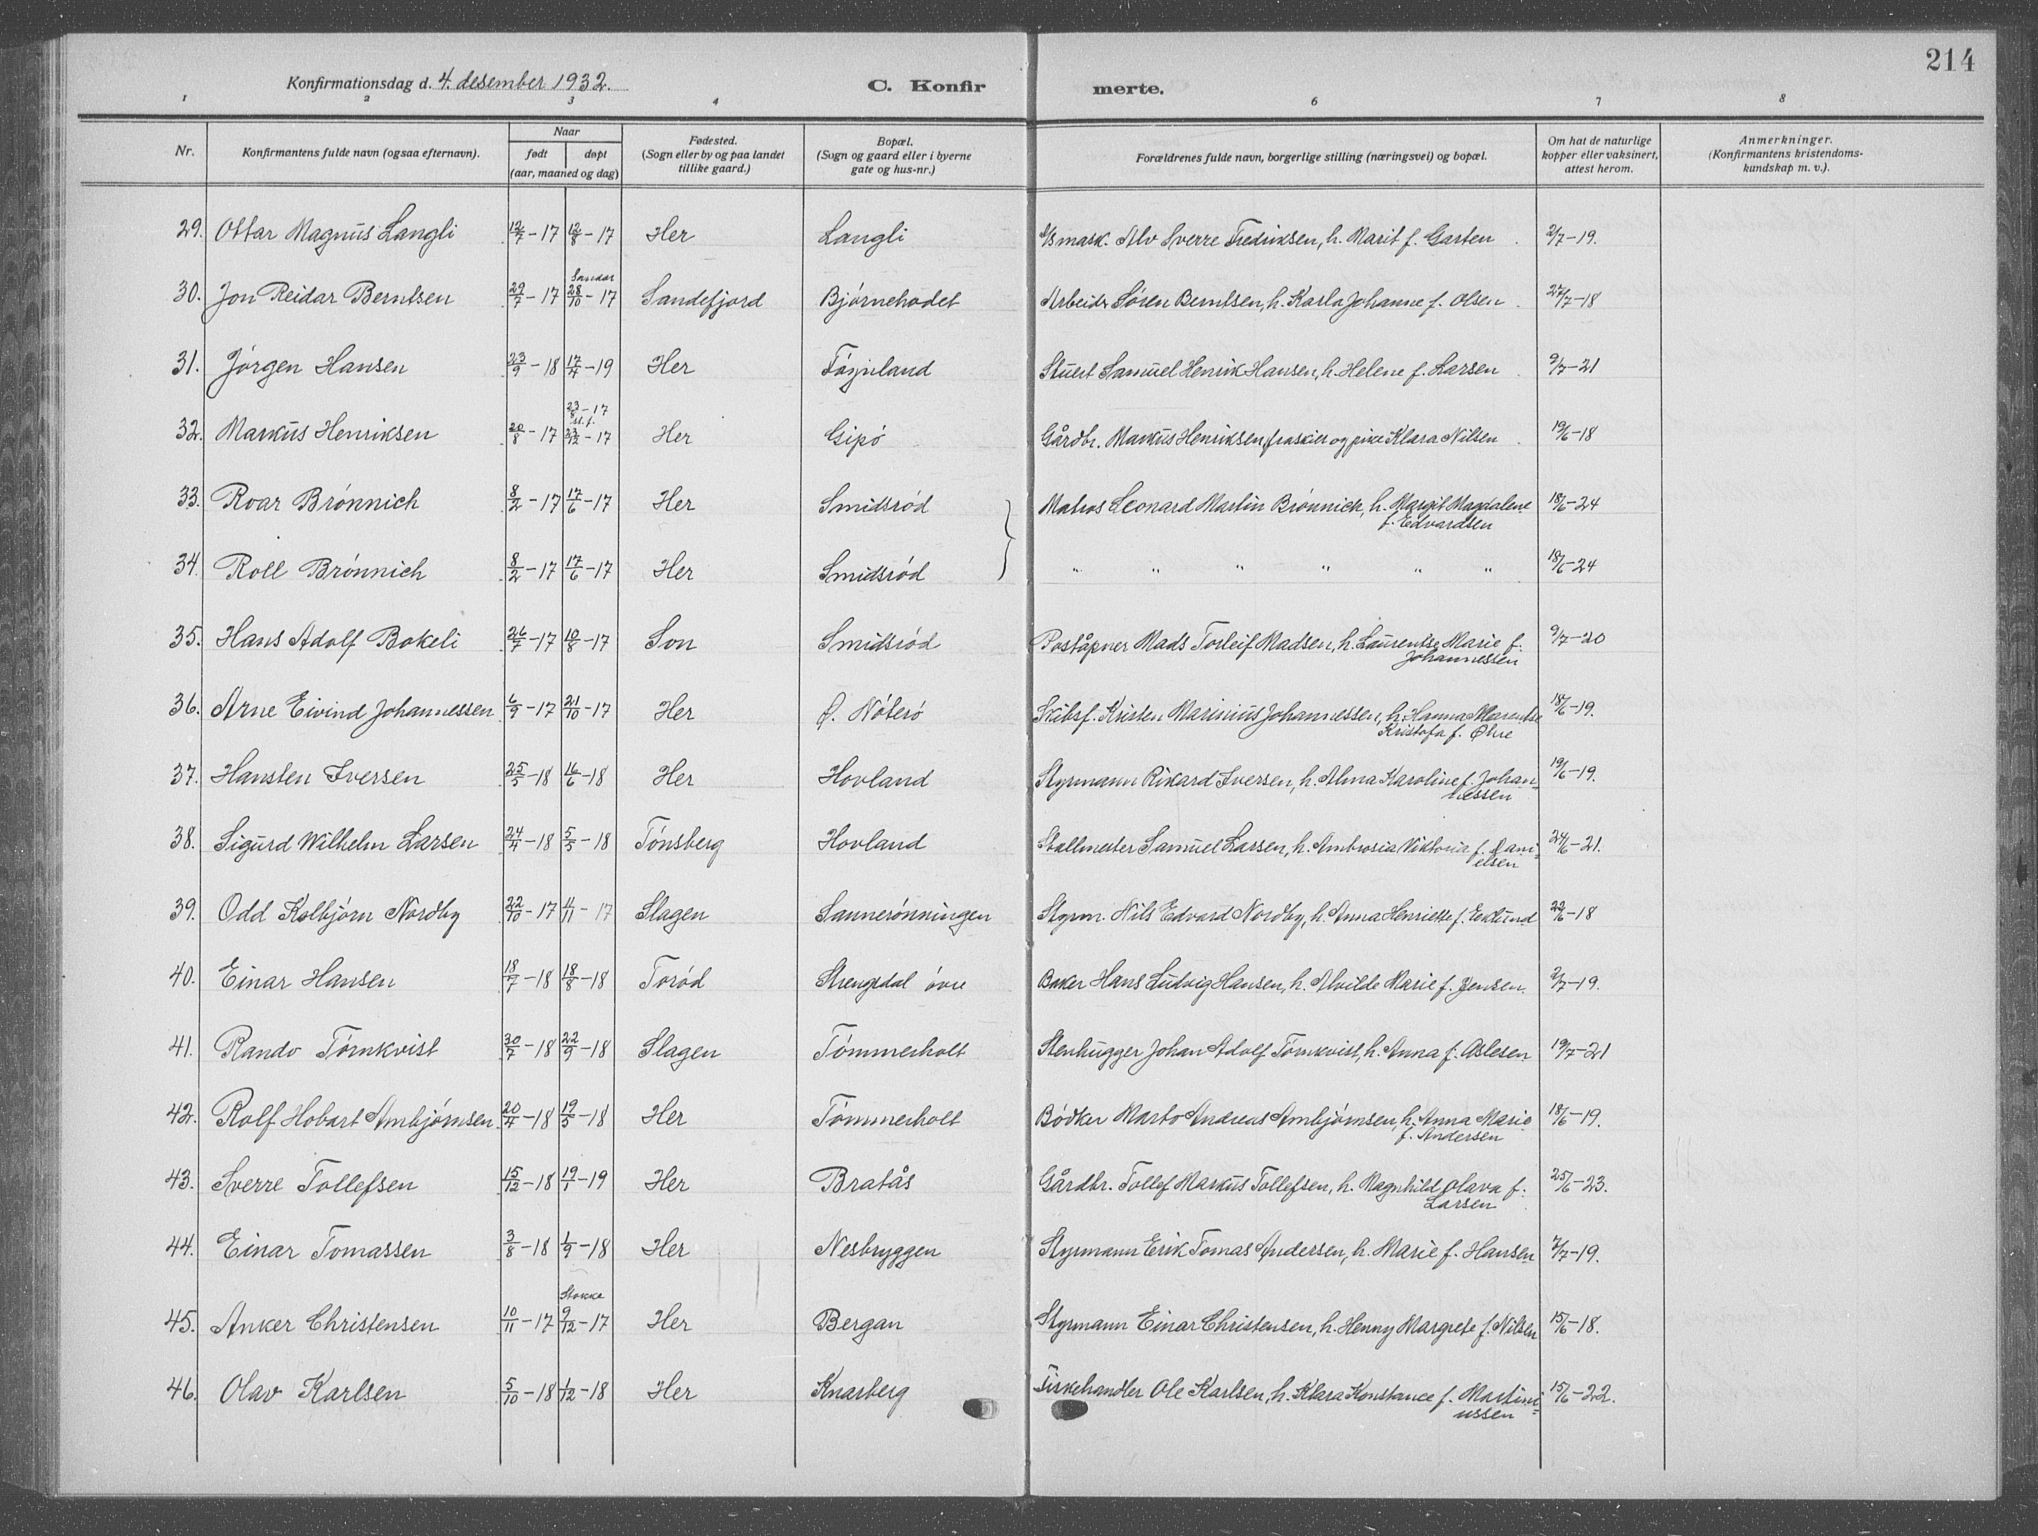 214
Konfirmationsdag d. 4. desember 1932. C. Konfirmerte.
1 2 3 4 6 7 8
Nr. Konfirmantens fulde navn (ogsaa efternavn). Naar født døpt (aar, maaned og dag) Fødested. (Sogn eller by og paa landet tillike gaard.) Bopæl. (Sogn og gaard eller i byerne gate og hus-nr.) Forældrenes fulde navn, borgerlige stilling (næringsvei) og bopæl. Om hat de naturlige kopper eller vaksinert, attest herom. Anmerkninger. (Konfirmantens kristendomskundskap m. v.).
29. Ottar Magnus Langli 12/7-17 12/8-17 Her Langli mask. Alv Sverre Fredriksen, h. Marit f. Garten 2/7-19.
30. Jon Reidar Berntsen 29/7-17 Sandar 28/10-17 Sandefjord Bjørnehodet Arbeider Søren Berntsen, h. Karla Johanne f. Olsen 27/7-18
31. Jørgen Hansen 23/9-18 17/4-19 Her Føynland Stuert Samuel Henrik Hansen, h. Helene f. Larsen 9/7-21
32. Markus Henriksen 20/8-17 23/8-17 st. f. 23/12-17 Her Gipø Gårdbr. Markus Henriksen, fraskier og pike Klara Nilsen 19/6-18
33. Roar Brønnich 8/2-17 17/6-17 Her Smidsrød Matros Leonard Martin Brønnick, h. Margit Magdalene f. Edvardsen 18/6-24
34. Roll Brønnich 8/2-17 17/6-17 Her Smidsrød " " " " " " 18/6-24
35. Hans Adolf Bakeli 26/7-17 10/8-17 Son Smidsrød Poståpner Mads Torleif Madsen, h. Laurentse Marie f. Johannessen 9/7-20
36. Arne Eivind Johannessen 6/9-17 21/10-17 Her Ø. Nøterø Skibsf. Kristen Marinius Johannessen, h. Hanna Marentse Kristofa f. Øhre 18/6-19.
37. Hansten Iversen 25/5-18 16/6-18 Her Hovland Styrmann Rikard Iversen, h. Alma Karoline f. Johannessen 19/6-19.
38. Sigurd Wilhelm Larsen 24/4-18 5/5-18 Tønsberg Hovland Stallmester Samuel Larsen, h. Ambrosia Viktoria f. Danielsen 24/6-21.
39. Odd Kolbjørn Nordby 22/10-17 4/11-17 Slagen Sannerønningen Styrm. Nils Edvard Nordby, h. Anna Henriette f. Eklund 22/6-18
40. Einar Hansen 18/7-18 18/8-18 Torød Strengsdal øvre Baker Hans Ludvig Hansen, h. Alvilde Marie f. Jensen. 2/7-19.
41. Rando Tørnkvist 30/7-18 22/9-18 Slagen Tømmerholt Stenhugger Johan Adolf Tørnkvist, h. Anna f. Aslesen 19/7-21
42. Rolf Hobart Arnbjørnsen 20/4-18 19/5-18 Her Tømmerholt Bødker Marto Andreas Arnbjørnsen, h. Anna Marie f. Andersen 18/6-19.
43. Sverre Tollefsen 15/12-18 19/1-19 Her Bratås Gårdbr. Tollef Markus Tollefsen, h. Magnhild Olava f. Larsen 25/6-23.
44. Einar Tomassen 3/8-18 1/9-18 Her Nesbryggen Styrmann Erik Tomas Andersen, h. Marie f. Hansen 7/7-19.
45. Anker Christensen 10/11-17 Stokke 9/12-17 Her Bergan Styrmann Einar Christensen, h. Henny Margrete f. Nilsen 15/6-18.
46. Olav Karlsen 5/10-18 1/12-18 Her Knarberg Fiskehandler Ole Karlsen, h. Klara Konstance f. Martiniussen 15/6-22.